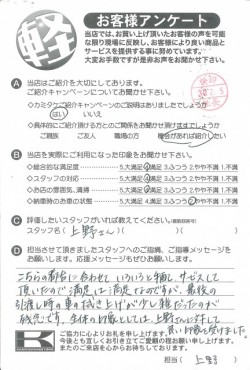 軽
お客様アンケート
当店では、お買い上げ頂いたお客様の声を可能
な限り現場に反映し、お客様により良い商品と
サービスを提供する事に努めています。
大変お手数ですが是非お声をお聞かせ下さい。
A 当店はご紹介を大切にしております。
ご紹介キャンペーンについてお聞かせ下さい。
◇カミタケご紹介キャンペーンのご説明はありましたでしょうか
はい いいえ
◇具体的にご紹介頂ける方とのご関係をお聞かせ頂けますでしょうか
ご親族 ご友人 職場の方 機会があれば紹介したい
B 当店を実際にご利用になった印象をお聞かせ下さい。
◇総合的な満足度 5.大満足 4.満足 3.ふつう 2.やや不満 1.不満
◇スタッフの対応 5.大満足 4.満足 3.ふつう 2.やや不満 1.不満
◇お店の雰囲気、清掃 5.大満足 4.満足 3.ふつう 2.やや不満 1.不満
◇納車時のお車の状態 5.大満足 4.満足 3.ふつう 2.やや不満 1.不満
C 評価したいスタッフがいれば教えてください。
スタッフ名( 上野さん )
D 担当させて頂きましたスタッフへのご指摘、ご応援メッセージを
お願いします。ご応援メッセージもお願いします。
こちらの都合に合わせていろいろと
頂いたので満足は満足なのですが、最後の
引渡し時の車の拭き上げが少し雑だったのが
残念です。全体の印象としては、上野さんに対して
良い印象を受けました。
K
ご協力に心よりお礼を申し上げます。
今後とも宜しくお引き立てご愛顧の程お願い申し上げます。
またのご来店を心からお待ちしております。
担当( 上野 )